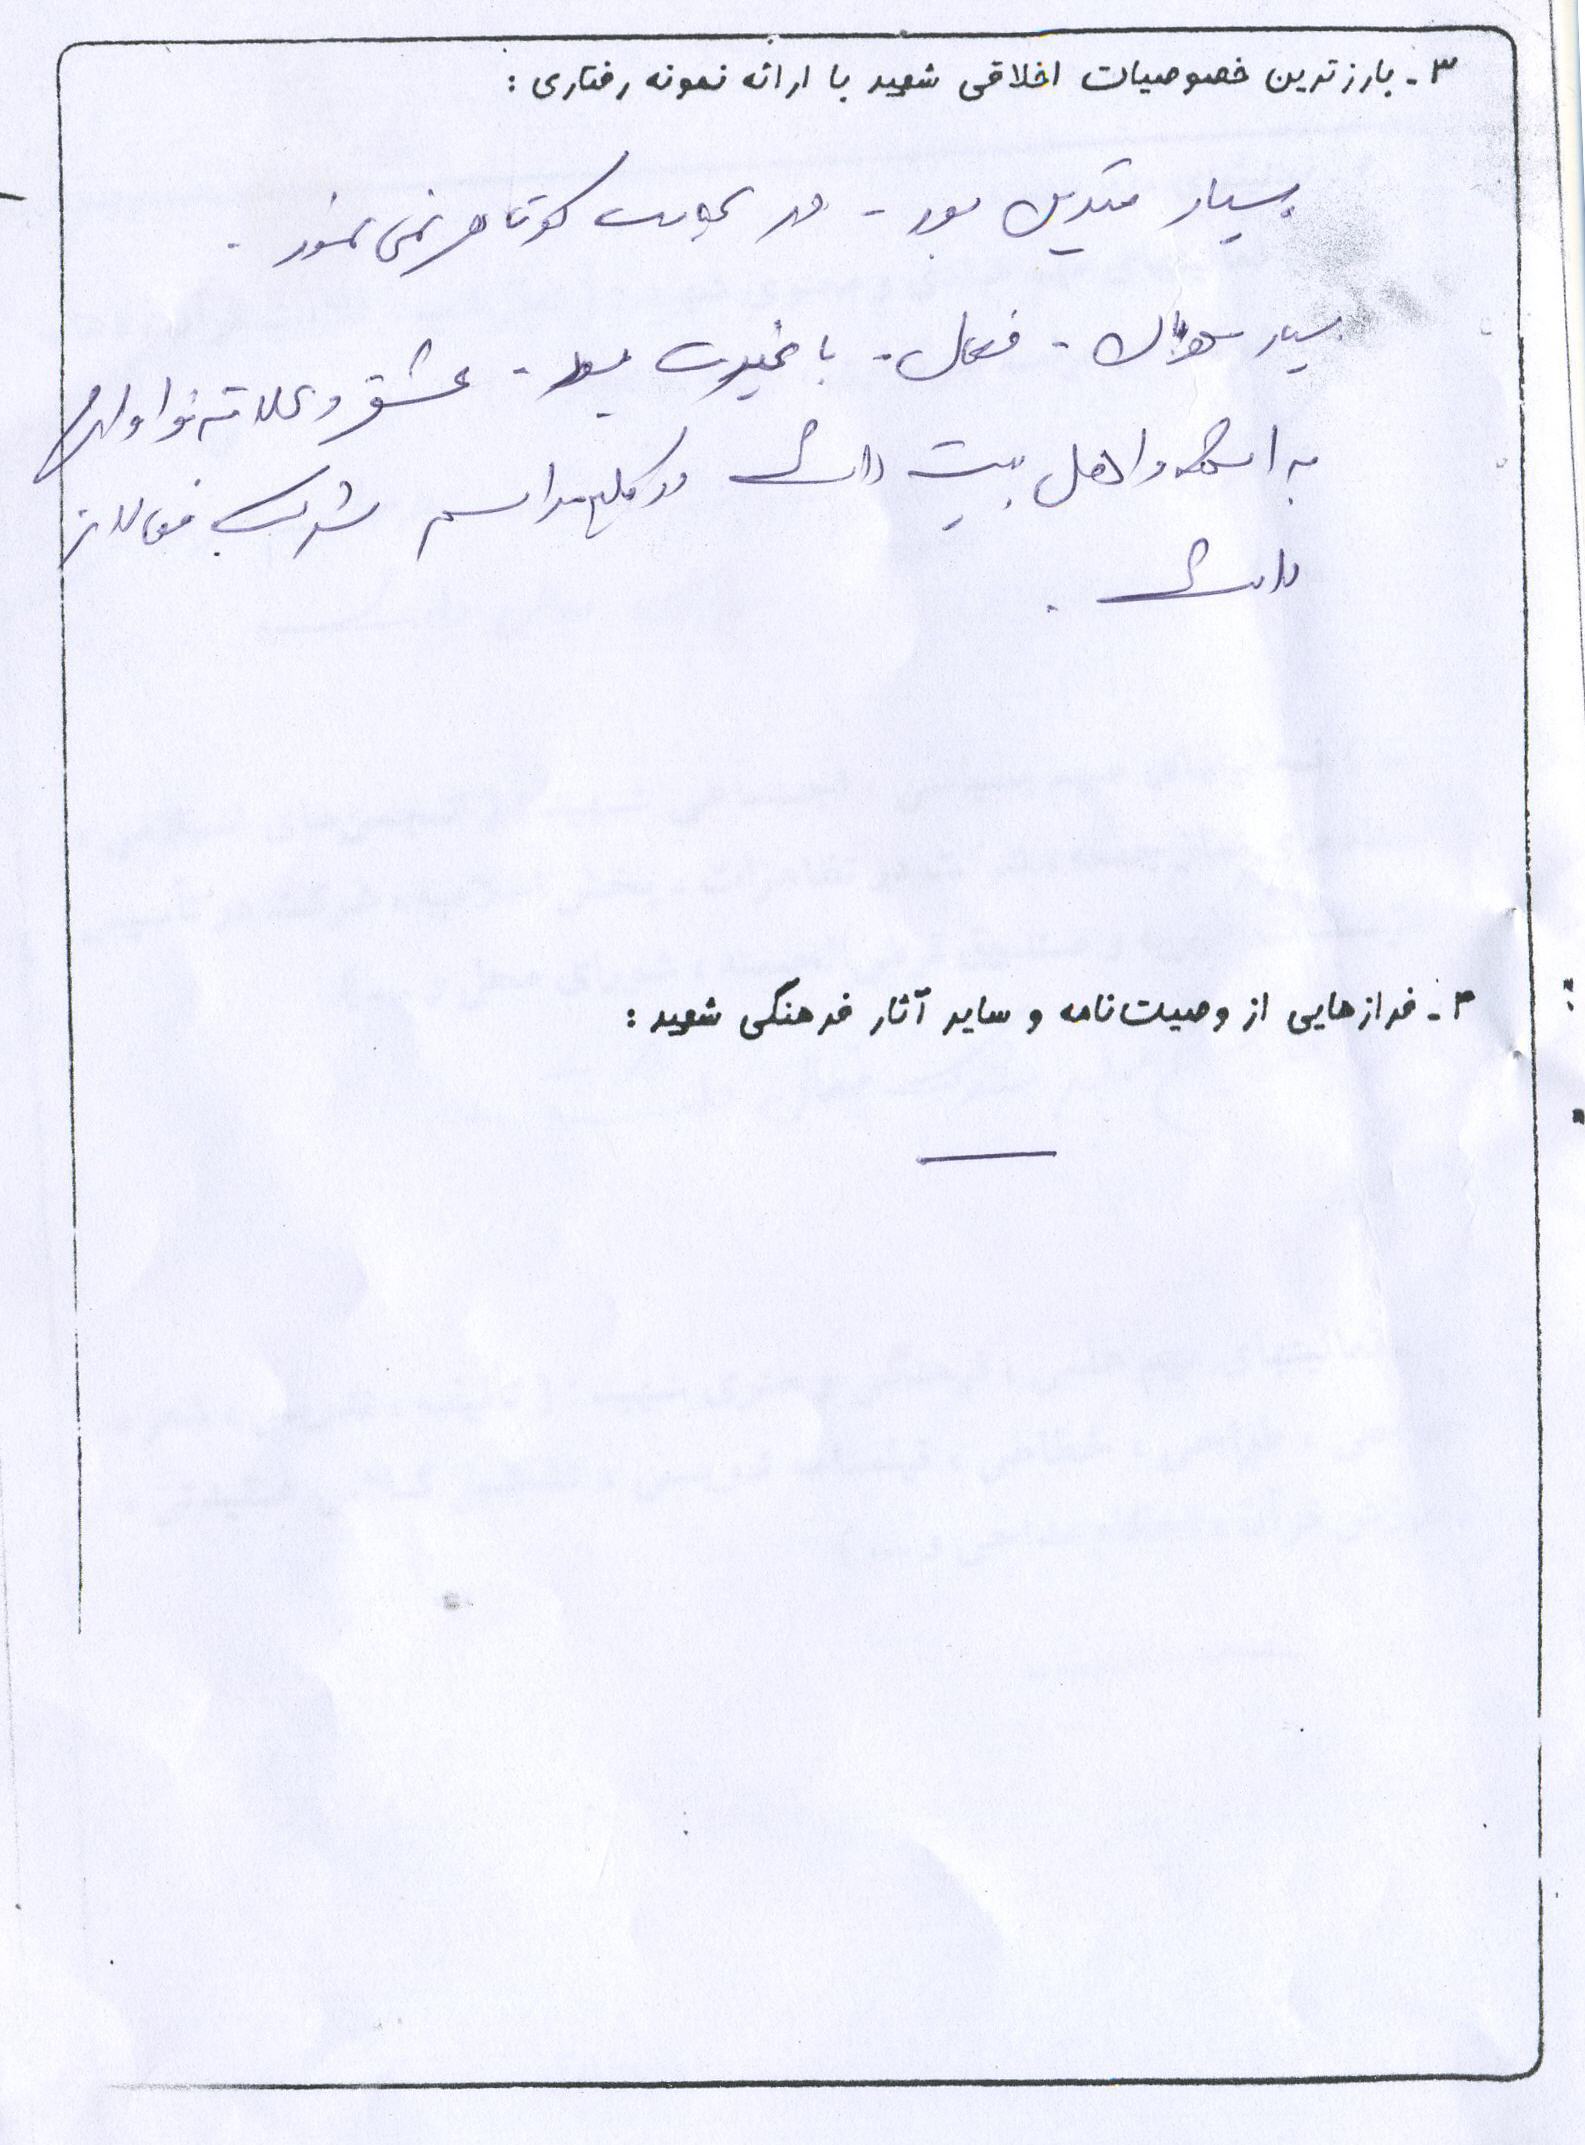 ۳ـ بارزترین خصوصیات اخلاقی شهید با ارائه نمونه رفتاری :
بسیار متدین بود - در عبادت کوتاهی نمی نمود .
بسیار - فعال - با غیرت بود - عشق و علاقه فراوانی
به ائمه و اهل بیت داشت در کلیه مراسم شرکت فعالانه
داشت .
۴ـ فرازهایی از وصیت‌نامه و سایر آثار فرهنگی شهید :